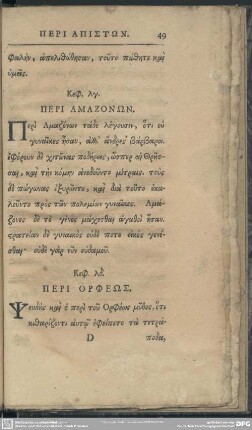 ΠΕΡΙ ΑΠΙΣΤΩΝ. 49
Φαλὴν, ἀπελιθώθησαν, τοῦτο πάθητε καὶ
ὑμεῖς.
Κεφ. λγ.
ΠΕΡΙ ΑΜΑΖΟΝΩΝ.
Περὶ Ἀμαζόνων τάδε λέγουσιν, ὅτι οὐ
γυναῖκες ἦσαν, ἀλλ' ἄνδρες βάρβαροι.
ἐφόρουν δὲ χιτῶνας ποδήρεις, ὥσπερ αἱ Θρῇσ-
σαι, καὶ τὴν κόμην ἀνεδοῦντο μίτραις. τοὺς
δὲ πώγωνας ἐξυρῶντο, καὶ διὰ τοῦτο ἐκα-
λοῦντο πρὸς τῶν πολεμίων γυναῖκες. Ἀμα-
ζόνες δὲ τὸ γένος μάχεσθαι ἀγαθοὶ ἦσαν.
στρατείαν δὲ γυναικὸς οὐδέ ποτε εἰκὸς γενέ-
σθαι· οὐδὲ γὰρ νῦν οὐδαμοῦ.
Κεφ. λδ.
ΠΕΡΙ ΟΡΦΕΩΣ.
Ψευδὴς καὶ ὁ περὶ τοῦ Ὀρφέως μῦθος, ὅτι
κιθαρίζοντι αὐτῷ ἐφείπετο τὰ τετρά-
D ποδα,